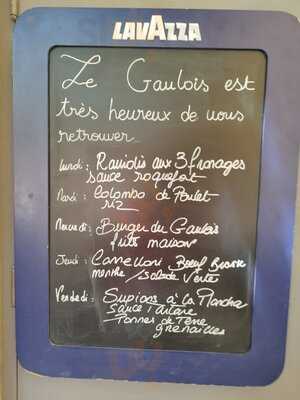 LAVAZZA
Le Gaulois est
très heureux de vous
retrouver
lundi : Raviolis aux 3 fromages
sauce roquefort
Mardi : Colombo de Poulet
riz
Mercredi : Burger du Gaulois
frites maison
Jeudi : Cannelloni Boeuf Brousse
menthe / salade verte
Vendredi : Supions à la Plancha
sauce tartare
Pommes de Terre
grenailles